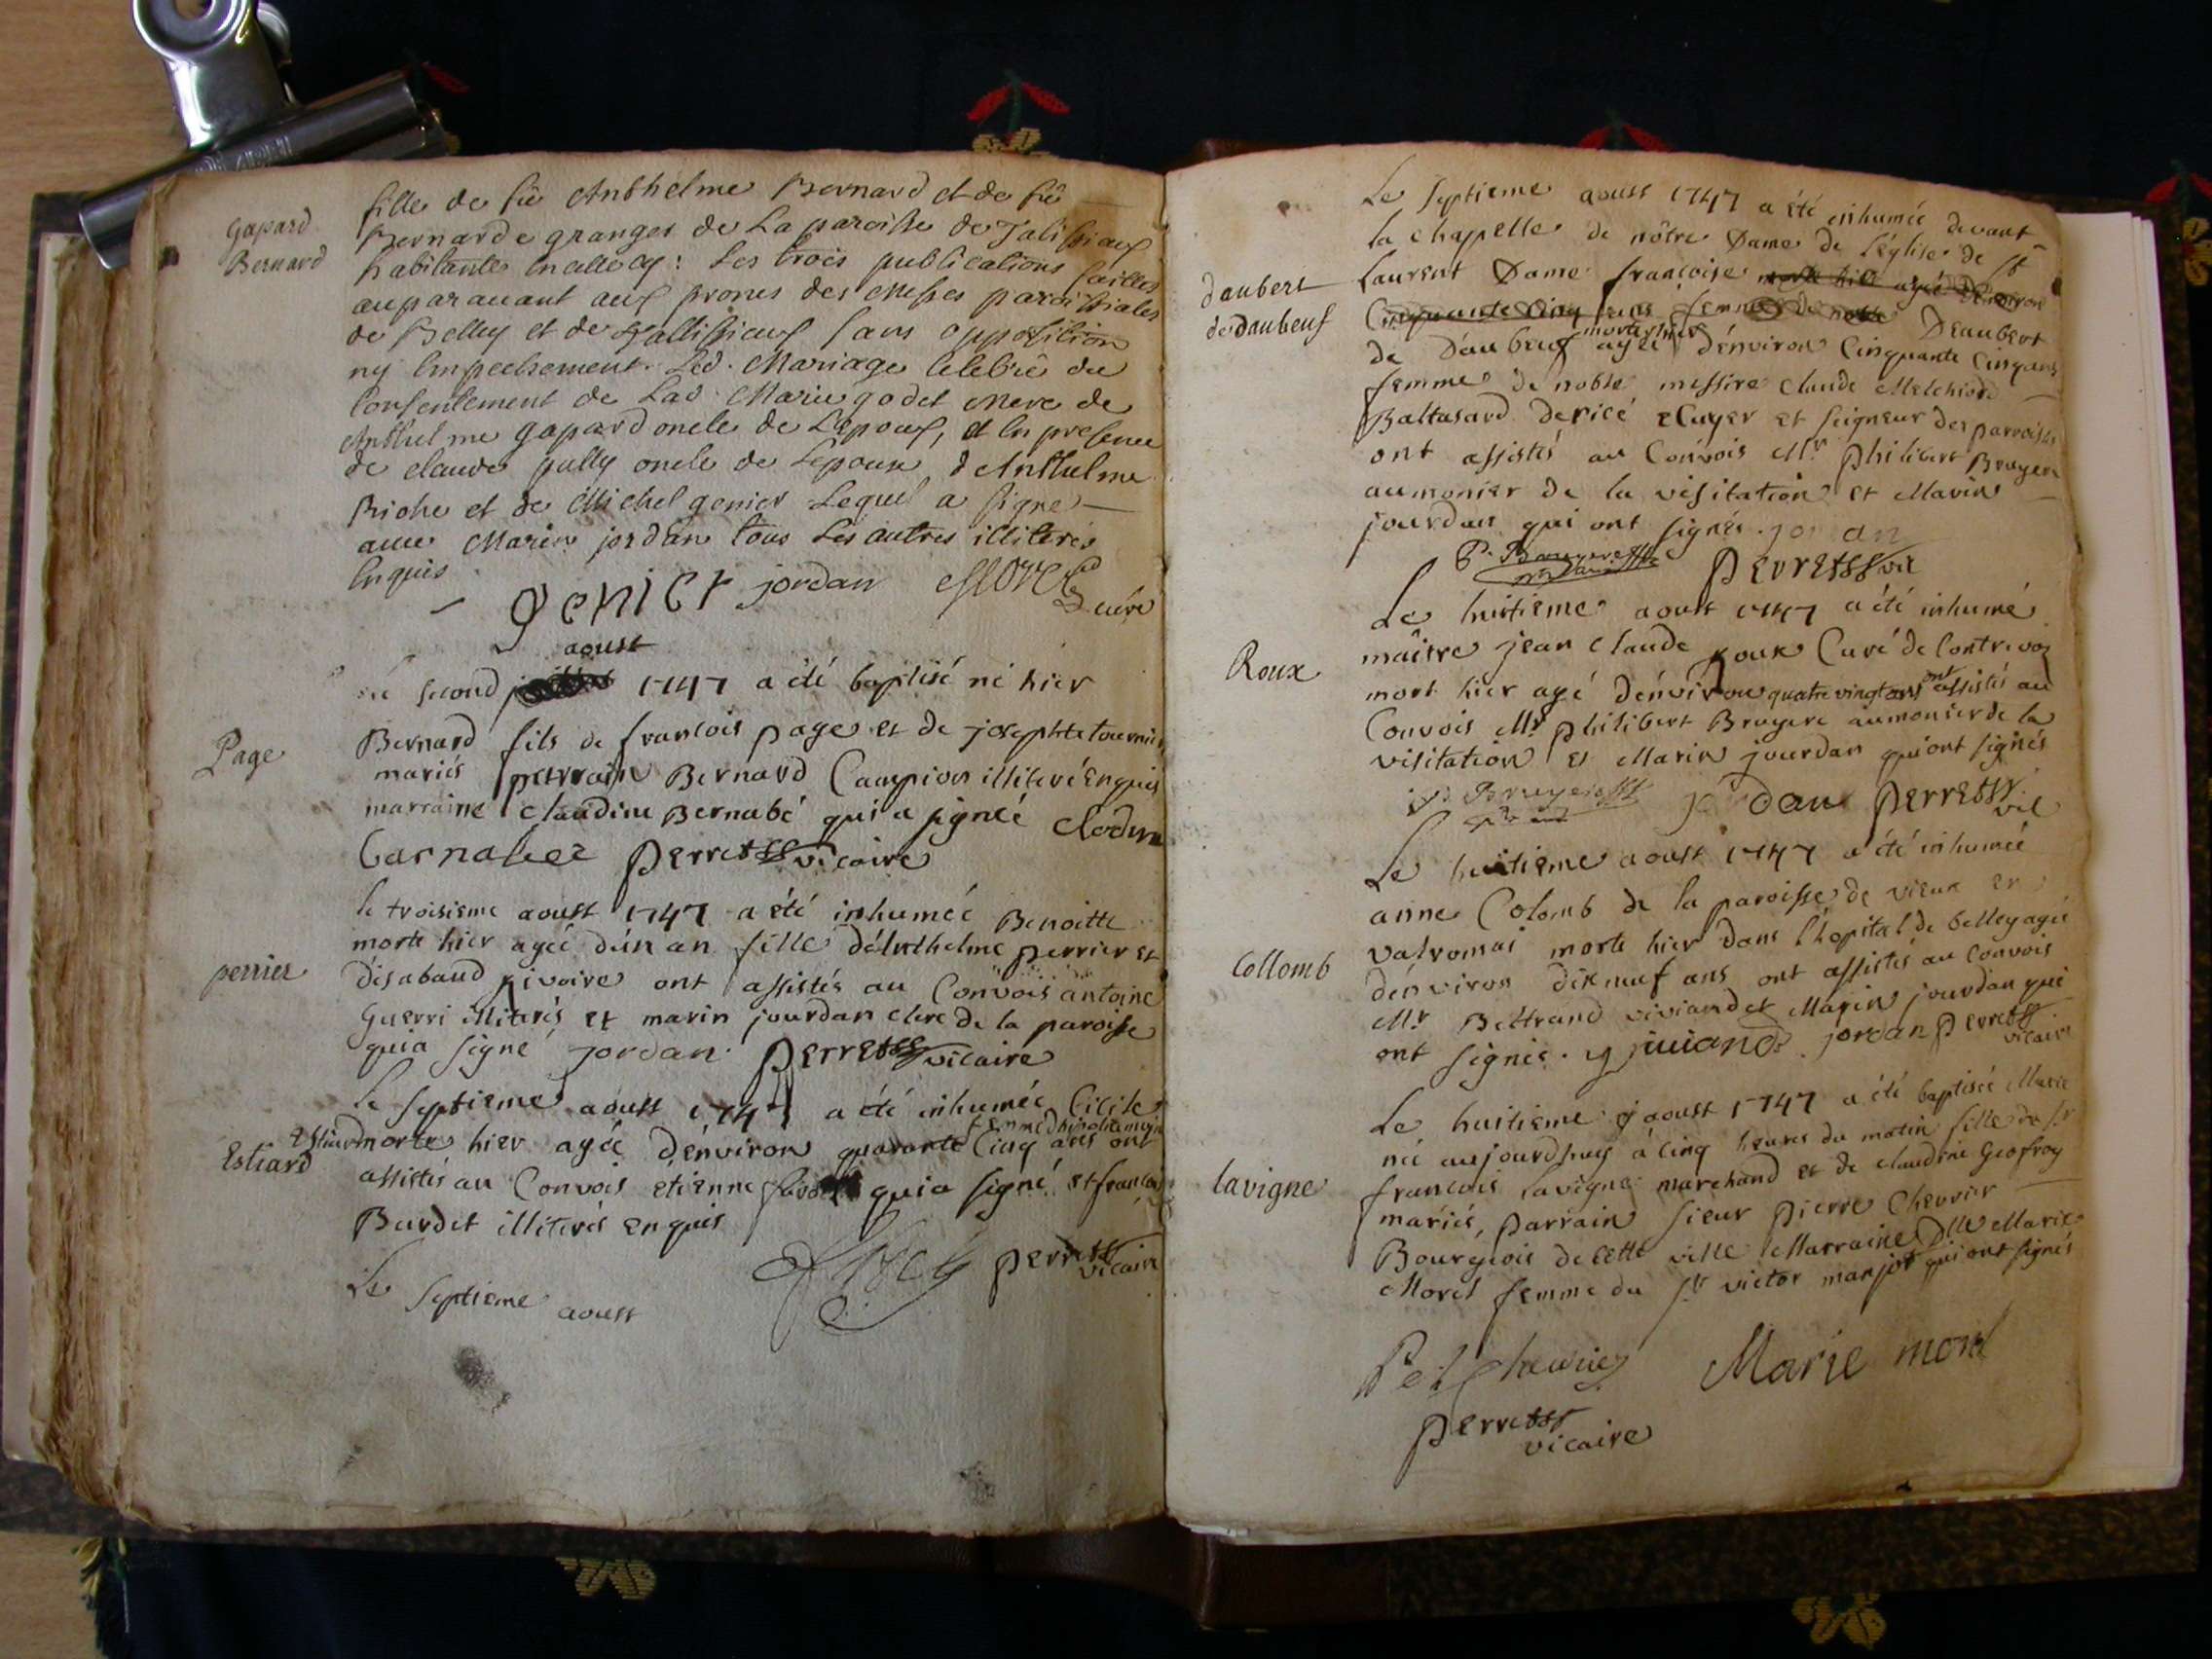 gapard
Bernard
fille de fû Anthelme Bernard et de fû
Bernarde granges de La paroisse de Talissieux
habitante : Les trois publications failles
auparavant aux prones des Messes paroissiales
de Belley et de Tallissieux sans opposition
ny Empechement. Led. Mariage Celebré du
Consentement de Lad. Marie godet mere de
Anthelme gapard oncle de L'epoux, et En presence
de claude pully oncle de Lepoux, d'Anthelme
Riche et de Michel genier Lequel a signé
avec Marin jordan tous Les autres illiterés
Enquis
genier jordan Curé
aoust
Le second 1747 a été baptisé né hier
Page
Bernard fils de francois page et de josephte tournier
mariés parrain Bernard Campion illiteré Enquis
marraine Claudine Bernabé qui a signeé Clodin
barnabee perret vicaire
le troisieme aoust 1747 a été inhumée Benoitte
morte hier agée dún an fille dánthelme perrier et
perrier
disabaud pivoire ont assistés au Convois antoine
Guerri illiterés et marin jourdan clerc de la paroisse
qui a signé jordan perret vicaire
Le septieme aoust 1747 a été inhumée Cicile
Estiard morte hier agée dénviron quarante Cinq ans ont
Estiard
assistés au Convois etienne qui a signé et francois
Burdet illiterés enquis
perret
vicaire
Le septieme aoust
Le septieme aoust 1747 a été inhumée devant
la chappelle de nôtre Dame de Léglise de St
daubert
de daubeuf
Laurent Dame francoise morte hier agée dénviron
Cinquante Cinq ans femme de noble Deaubert
morte hier
de Daubeuf agée dénviron Cinquante Cinq ans
femme de noble messire claude Melchiord
Baltasard Dericé eCuyer et seigneur des parroisses
ont assistés au Convois Mr. philibert Bruyere
aumonier de la visitation et Marin
jourdan qui ont signés. jordan
P. Bruyere perret vic
Le huitieme aoust 1747 a été inhumé
Roux
maître jean claude roux Curé de Contrevoz
mort hier agé dénviron quatre vingt ans ont assistés au
Convois Mr. philibert Bruyere aumonier de la
visitation et Marin jourdan qui ont signés
P. Bruyere jordan perret
vic
Le huitieme aoust 1747 a été inhumée
anne Colomb de la paroisse de vieux en
Collomb
valromai morte hier dans l'hopital de belley agée
dénviron dix neuf ans ont assistés au Convois
Mr Beltrand viviand et Marin jourdan qui
ont signés. viviand jordan perret
vicaire
Le huitieme aoust 1747 a été baptisée Marie
née aujourdhuy à Cinq heures du matin fille de sr
lavigne
francois lavigne marchand et de claudine Geofroy
mariés, parrain sieur pierre Chevrier
Bourgeois de cette ville Marraine Dlle Marie
Morel femme du sr victor manjot qui ont signés
Marie morel
perret
vicaire